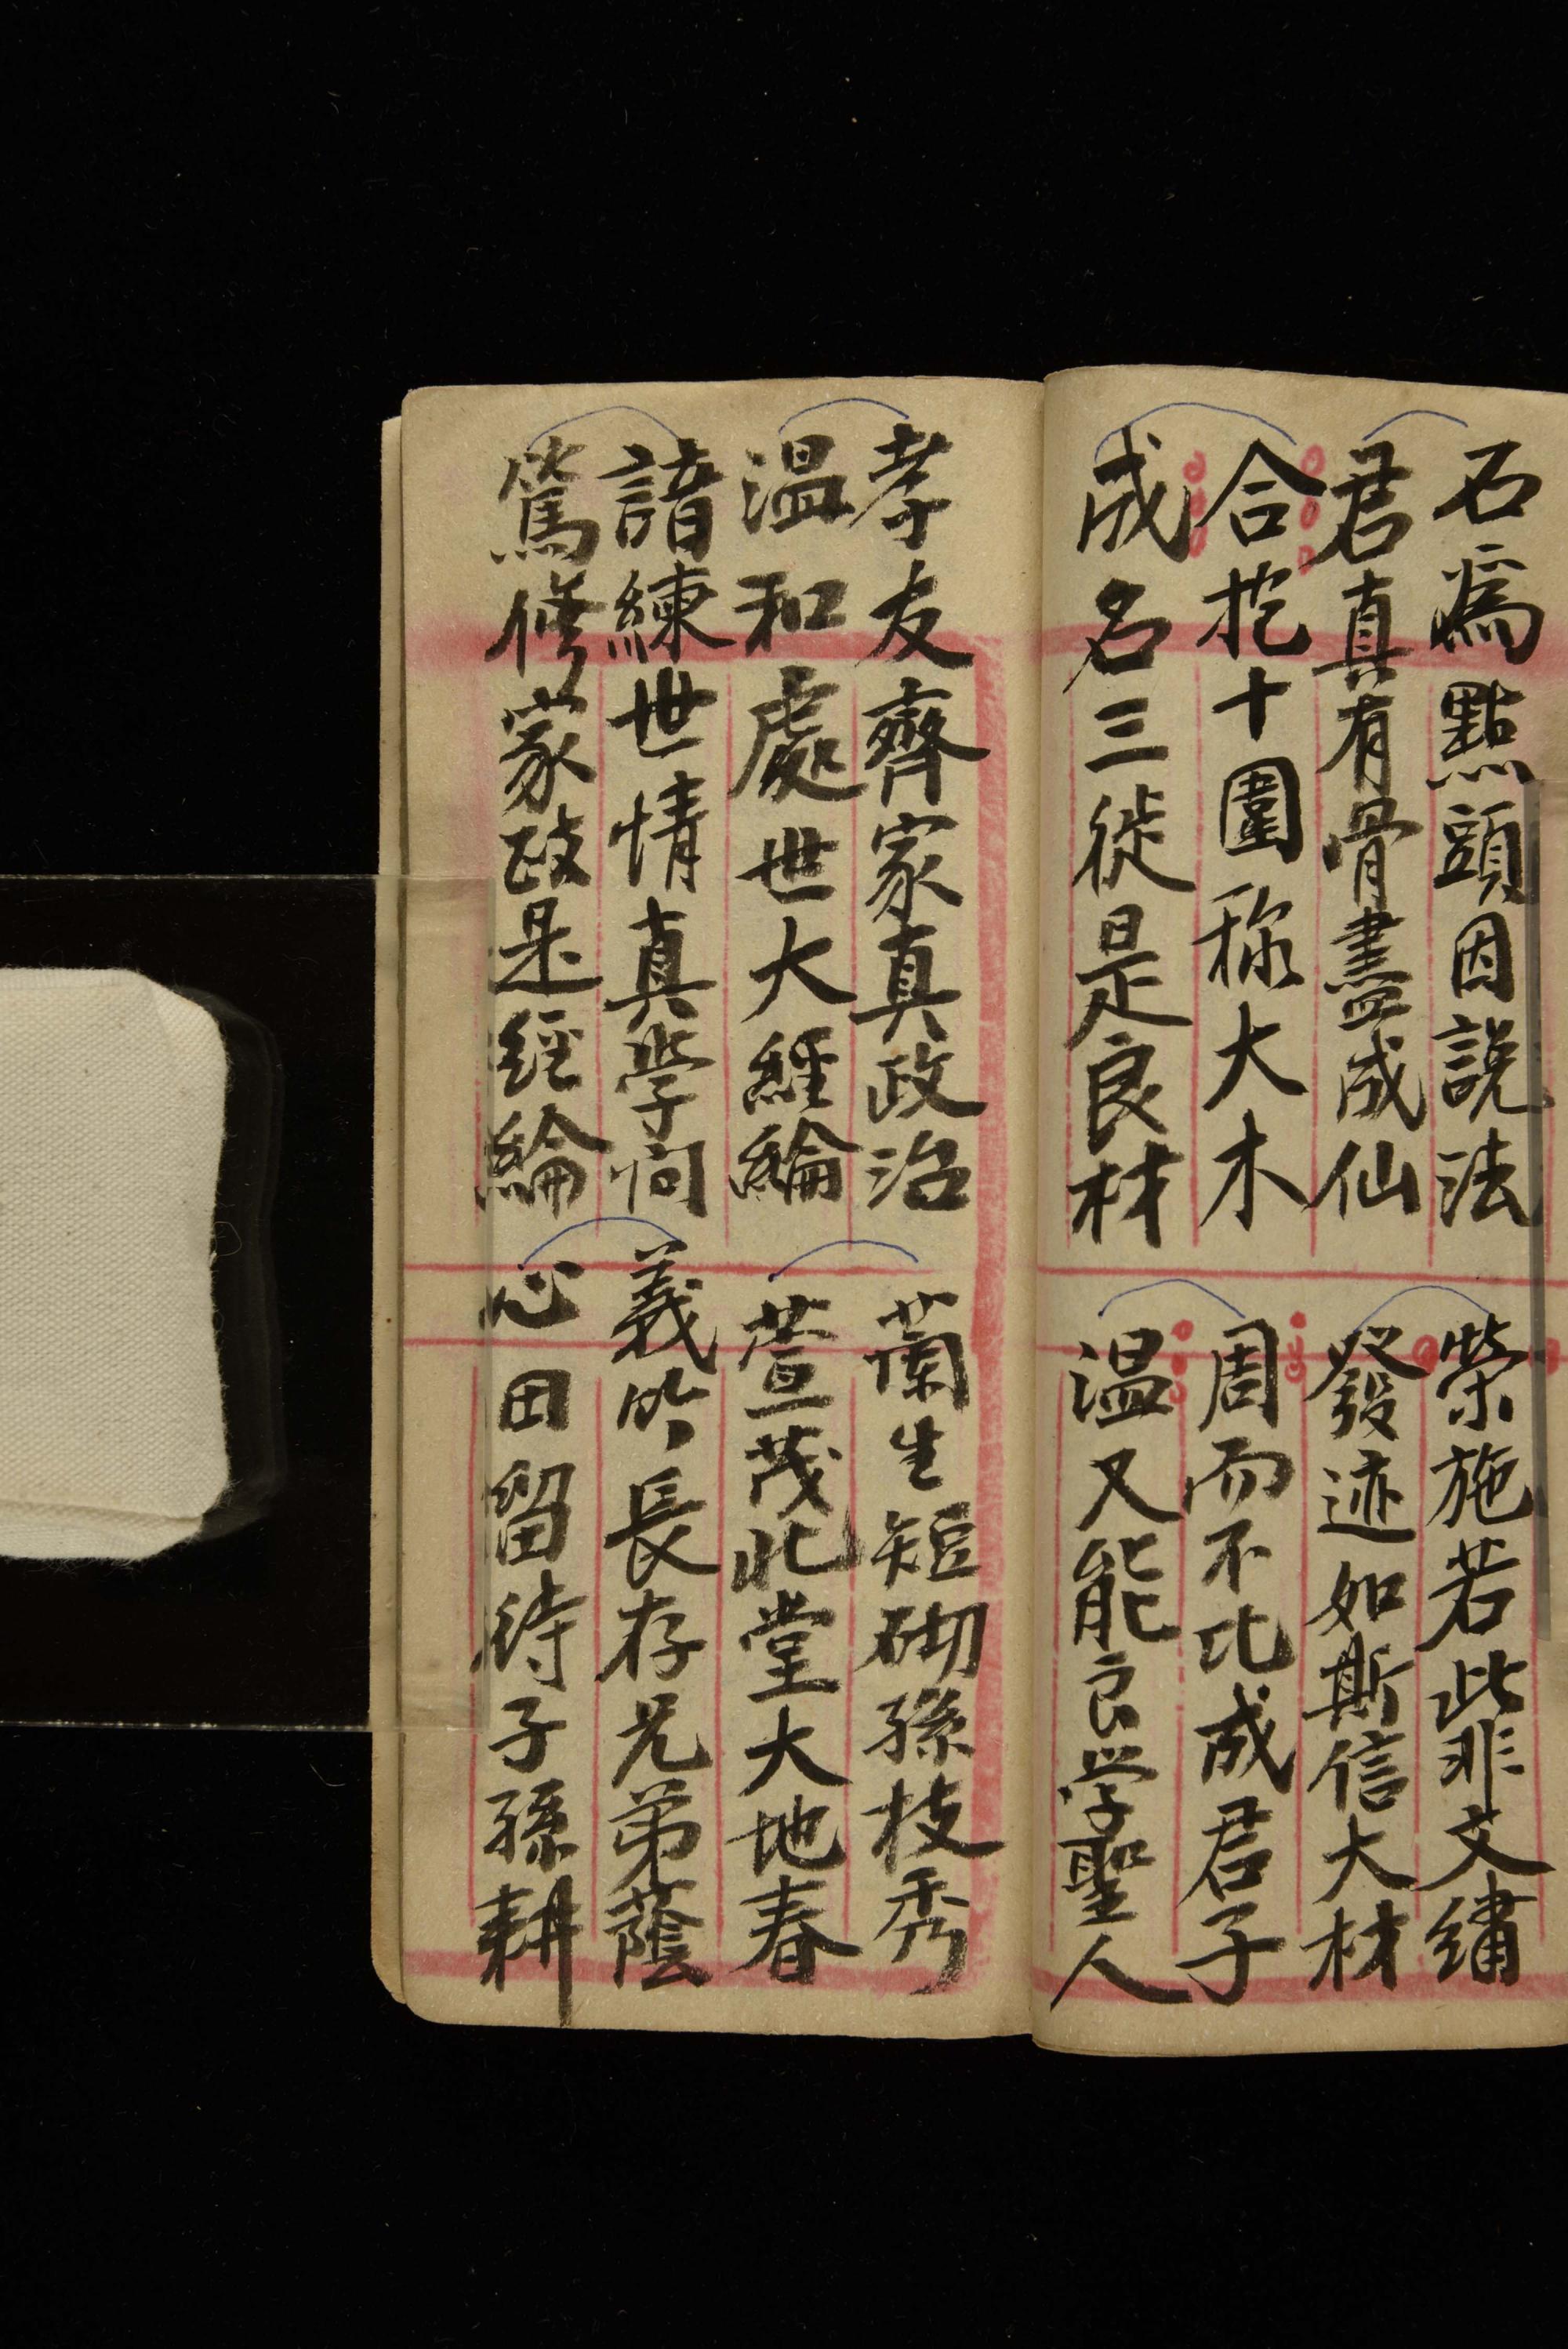 石爲點頭因說法
君真有骨盡成仙
合抱十圍称大木
成名三徙是良材
榮施若此非文繡
發迹如斯信大材
周而不比成君子
温又能良学聖人
孝友齊家真政治
温和處世大經綸
諳練世情真學问
篤修家政是經綸
蘭生短砌孫枝秀
萱茂北堂大地春
義竹長存兄弟蔭
心田留待子孫耕